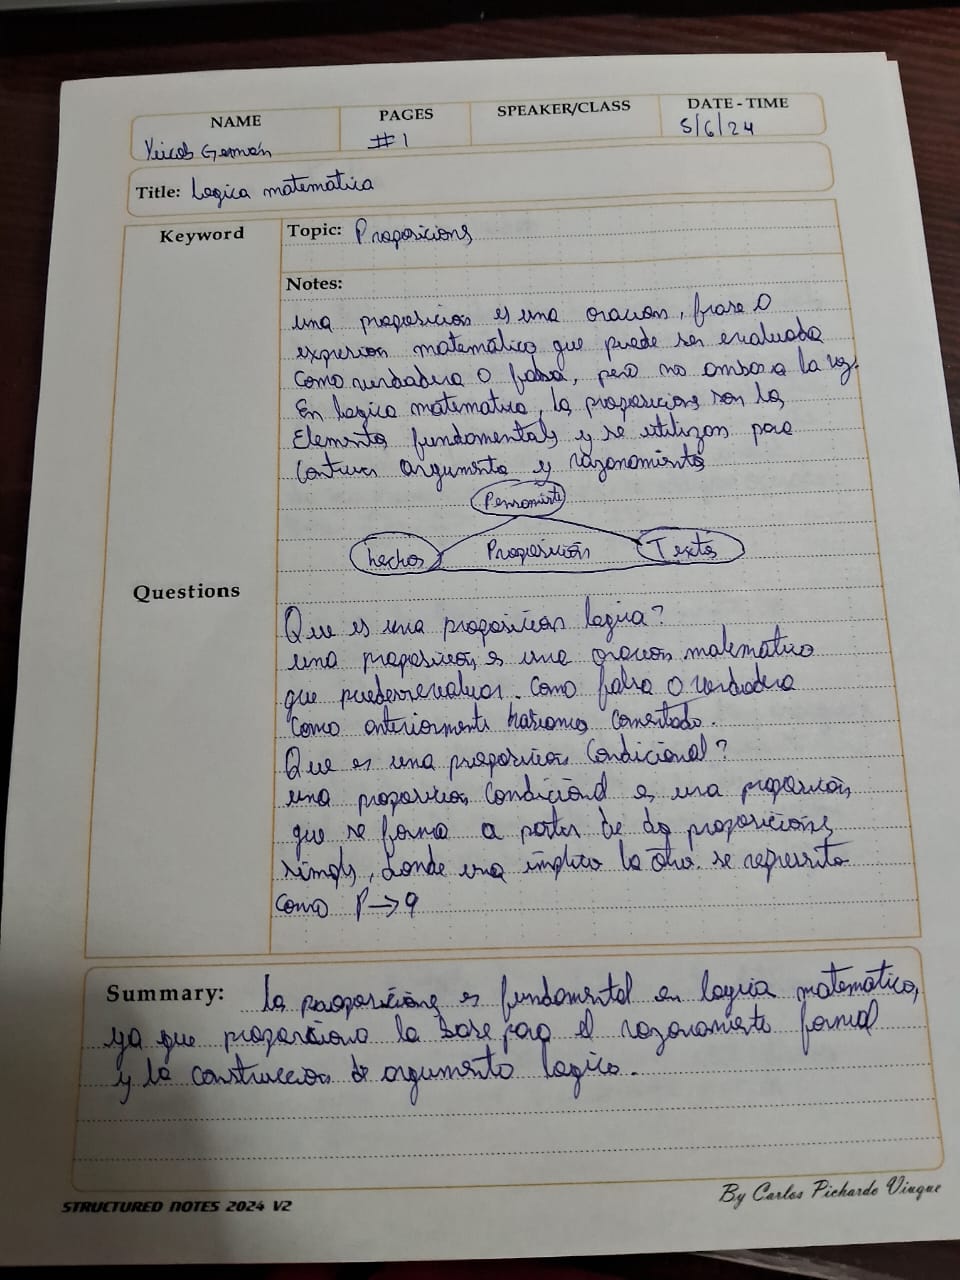 NAME
PAGES
SPEAKER/CLASS
DATE - TIME
Yeicob Germán
#1
5/6/24
Title: Logica matematica
Keyword
Topic: Proposicions
Notes:
una proposicion es una oracion, frase o
expresion matemático que puede ser evaluada
como verdadera o falsa, pero no ambos a la vez.
En logica matematica, la proposicions son los
Elementos fundamentals y se utilizan para
argumento y razonamiento
Pensamiento
hechos
Proposición
Textos
Questions
Que es una proposicion logica?
una proposicion, es una oracion matematico
que puede evaluar. como falsa o verdadera
como anteriormente comentado.
Que es una proposicion Condicional?
una proposicion Condicional es una proposicion,
que se forma a partir de dos proposicions
simpls, donde una implica la otra. se representa
como P→q
Summary: la proposicions es fundamental en logica matematico,
ya que proporciono la base para el razonamiento formal
y la construccion de argumento logico.
STRUCTURED NOTES 2024 V2
By Carlos Pichardo Viuque